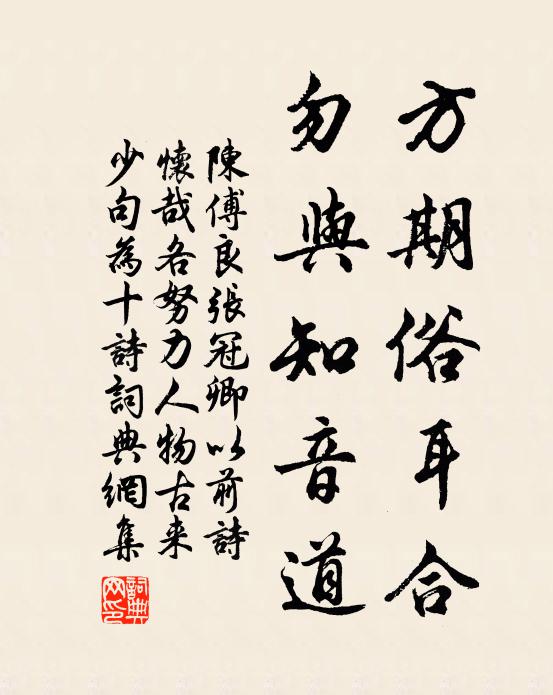 方期俗耳合
勿與知音道
陳傅良張冠卿以前詩
懷哉各努力人物古来
少句為十詩詞典網集
詞典網印